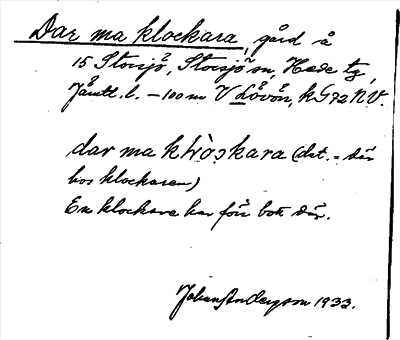 Dar ma klockara, gård å
15 Storsjö, Storsjö sn, Hede tg,
Jämtl. l. – 100 m V Lövön, kG 72 NV.
dar ma klòskara (dat. – där
hos klockaren)
En klockare har förr bott där.
Johan Anderson 1933.